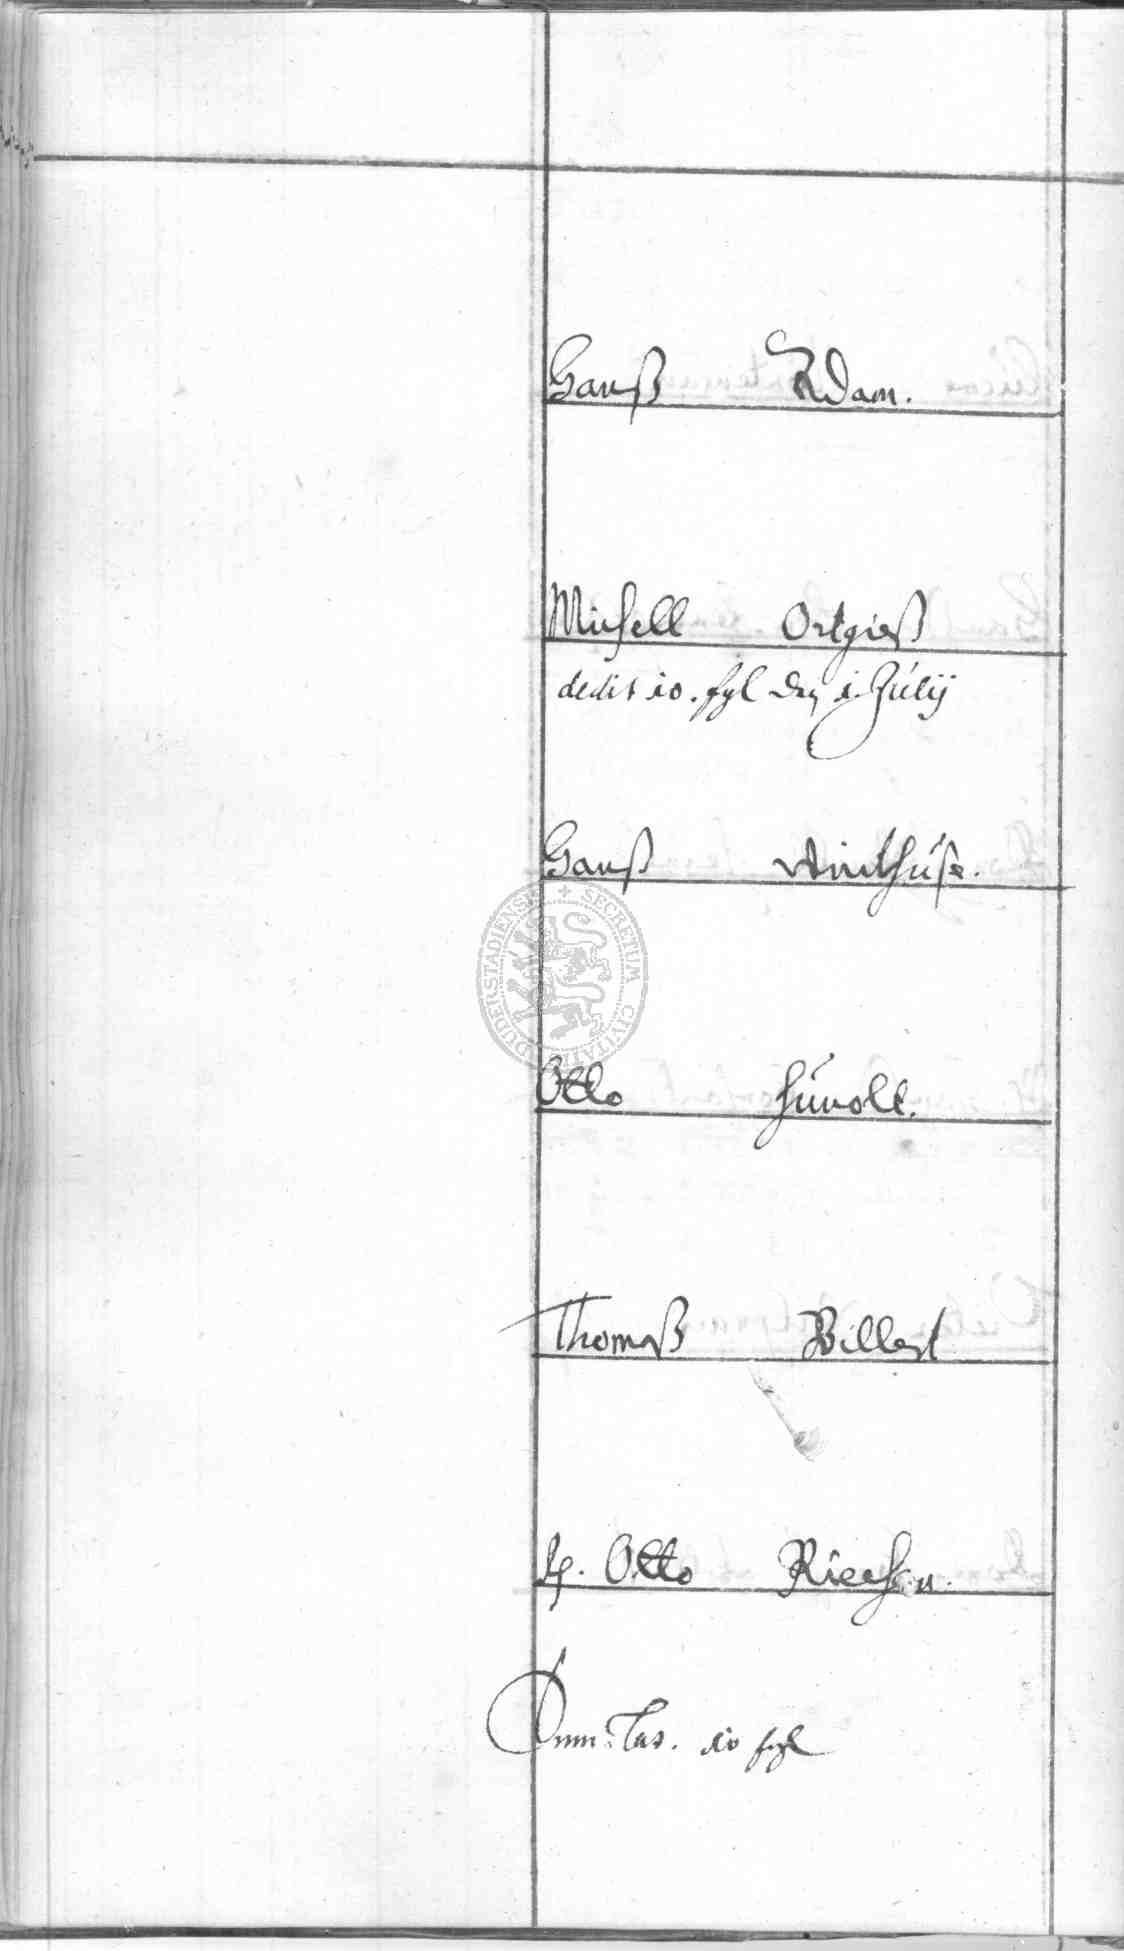 Hanß Adam.
Michell Ortgieß
dedit 10. ßgl den 1. Julij
Hanß
SECRETUM CIVITATIS DUDERSTADIENSIS
Otto Hunolt.
Thomaß Billest
H. Otto Riechen.
10 ßgl